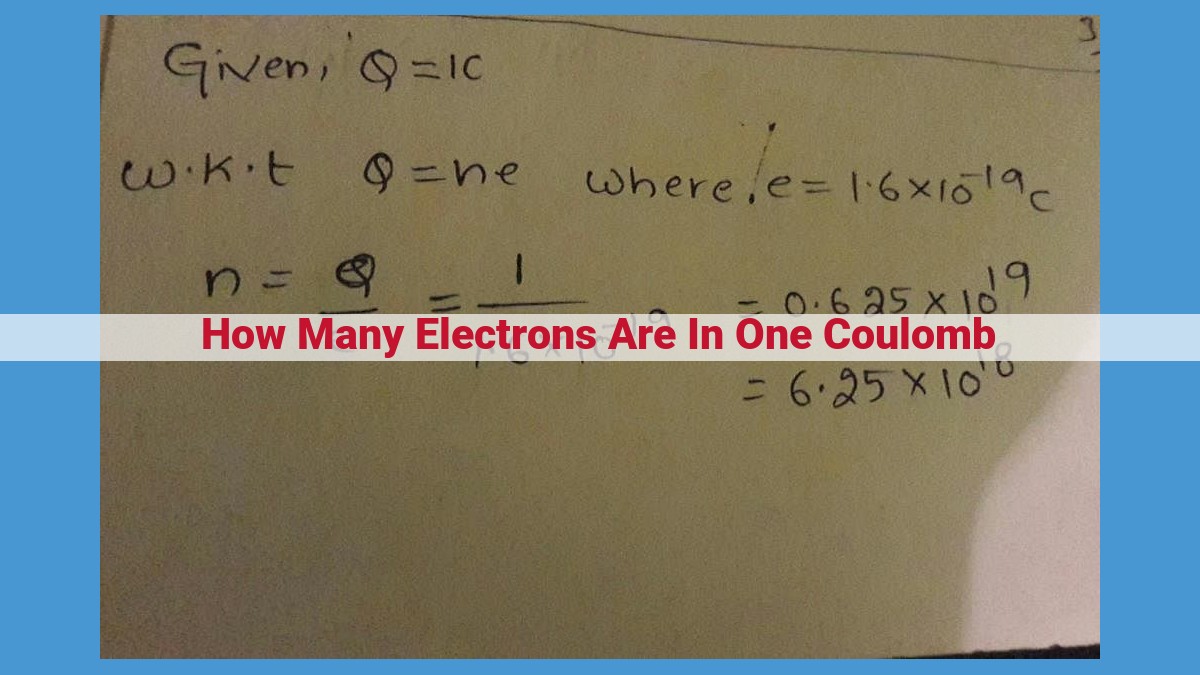 3
Given, Q = 1C
w.k.t Q = ne where, e = 1.6×10⁻¹⁹ C
n = Q = 1 = 0.625 × 10¹⁹
How Many Electrons Are In One Coulomb
1.6 × 10⁻¹⁹
= 6.25 × 10¹⁸